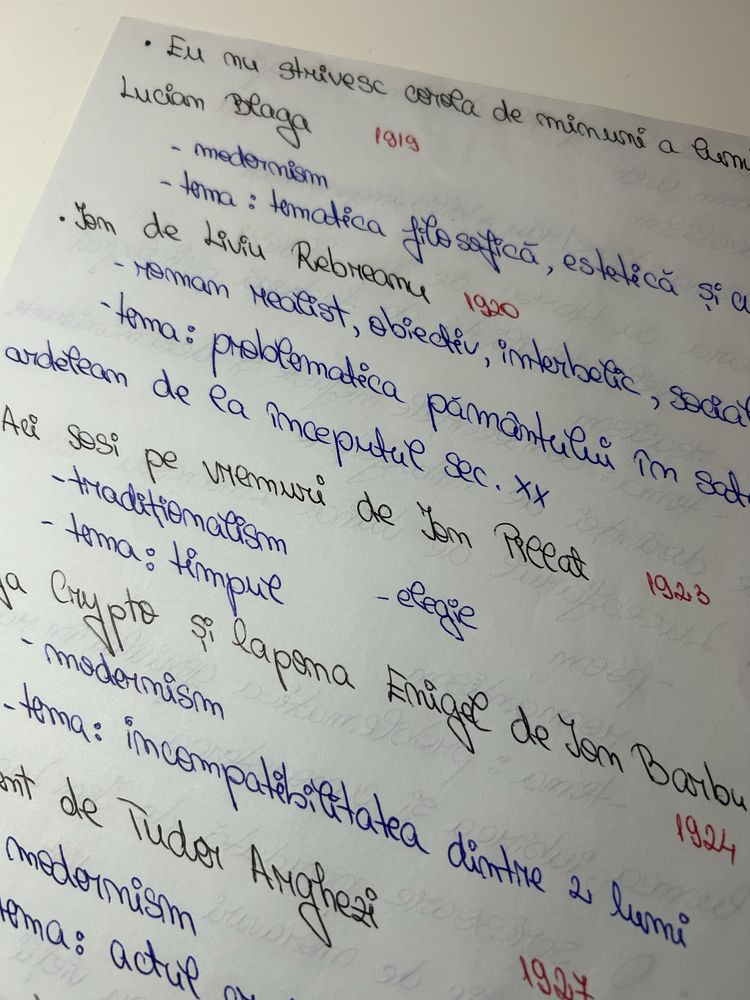 • Eu nu strivesc corola de minuni a lumi
Lucian Blaga 1919
- modernism
- tema: tematica filosofică, estetică și a
• Ion de Liviu Rebreanu 1920
- roman realist, obiectiv, interbelic, social
- tema: problematica pământului în sat
ardelean de la începutul sec. XX
Aci sosi pe vremuri de Ion Pillat 1923
- tradiționalism
- tema: timpul - elegie
Crypto și lapona Enigel de Ion Barbu
1924
- modernism
- tema: incompatibilitatea dintre 2 lumi
de Tudor Arghezi 1927
modernism
tema: actul